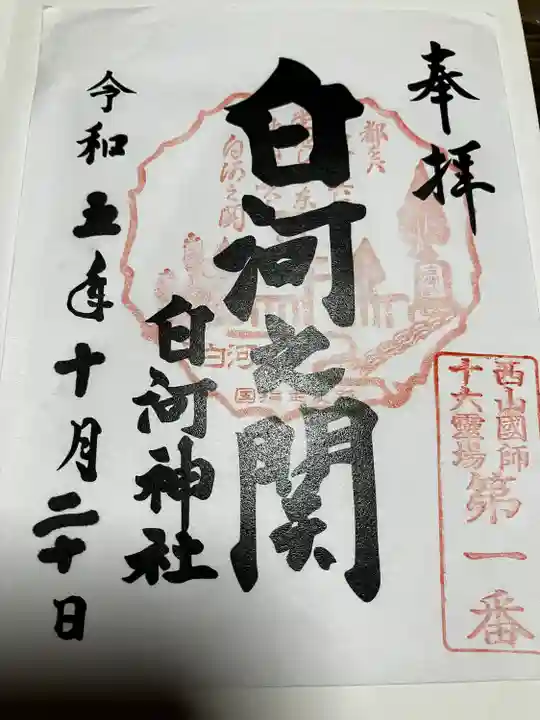 奉拝
西山國師
十六霊場
第一番
白河之関
白河神社
令和五年十月二十日
都を
白河之関
白河
国指